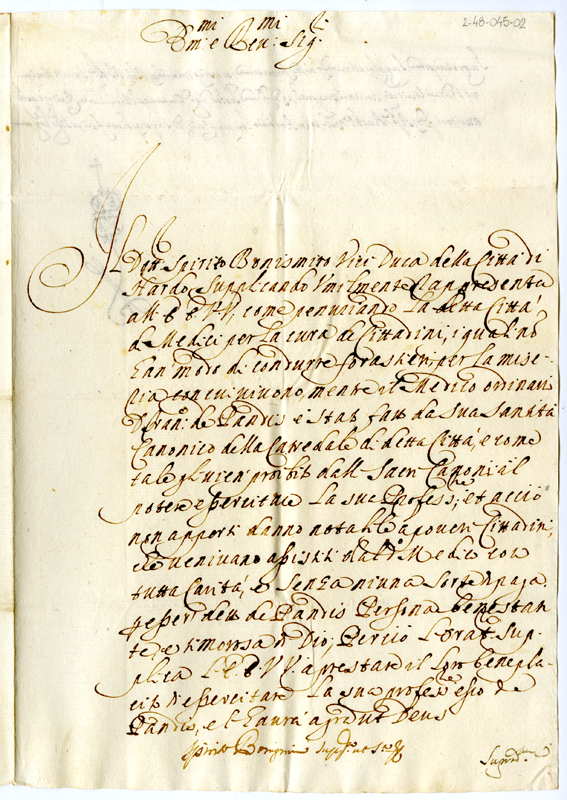 2-48-045-02
mi mi
Em: e Rev: Sig:
Il Dott. Spirito Bonismiro Vice Duca della Città di
Nardò, supplicando Umilmente rappresenta
all' EE VV, come penuriando la detta Città
de Medici per la cura de Cittadini, i quali nō
han modo di condurre forastieri, per la mise-
ria con cui vivono, mentre il Medico ordinari
D. Fran: de Pandis è stato fatto da sua Santità
Canonico della Catredale di detta Città, e come
tale gli vien proibito dalli Sacri Canoni il
potere essercitare la sua Profess:; et acciò
non apporti danno notabile a poveri Cittadini,
che venivano assistiti dal d: Medico con
tutta Carità, e senza niuna sorte di paga
p esser detto de Pandis Persona benestan
te, e timorosa di Dio; Perciò l'orat: sup-
plica l'EE VV. a prestare il loro benepla-
cito d'essercitare la sua profess: esso de
Pandis, e l'haurà a gra ut Deus
Spirito supp: ut s: